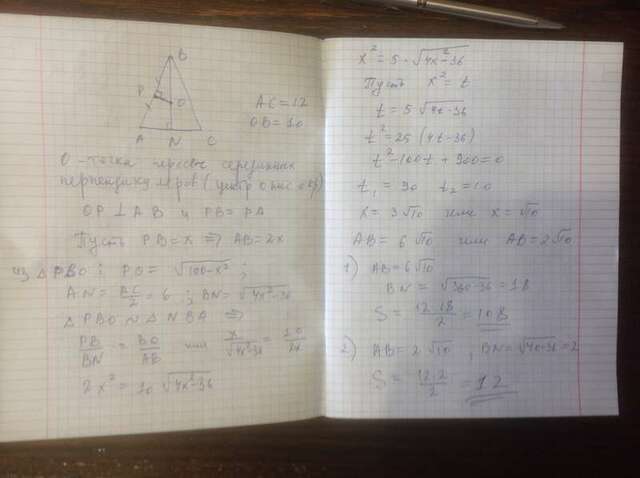 B
P
O
A N C
AC=12
OB=10
O - точка пересеч серединных
перпендикуляров (центр опис окр)
OP ⊥ AB и PB = PA
Пусть PB = x ⇒ AB = 2x
из △ PBO : PO = √(100-x²) ;
AN = BC/2 = 6 ; BN = √(4x²-36)
△ PBO ~ △ NBA ⇒
PB/BN = BO/AB или x/√(4x²-36) = 10/2x
2x² = 10 √(4x²-36)
x² = 5 · √(4x²-36)
Пусть x² = t
t = 5 √(4t-36)
t² = 25 (4t-36)
t² - 100t + 900 = 0
t₁ = 90 t₂ = 10
x = 3√10 или x = √10
AB = 6√10 или AB = 2√10
1) AB = 6√10
BN = √(360-36) = 18
S = 12·18/2 = 108
2) AB = 2√10 ; BN = √(40-36) = 2
S = 12·2/2 = 12